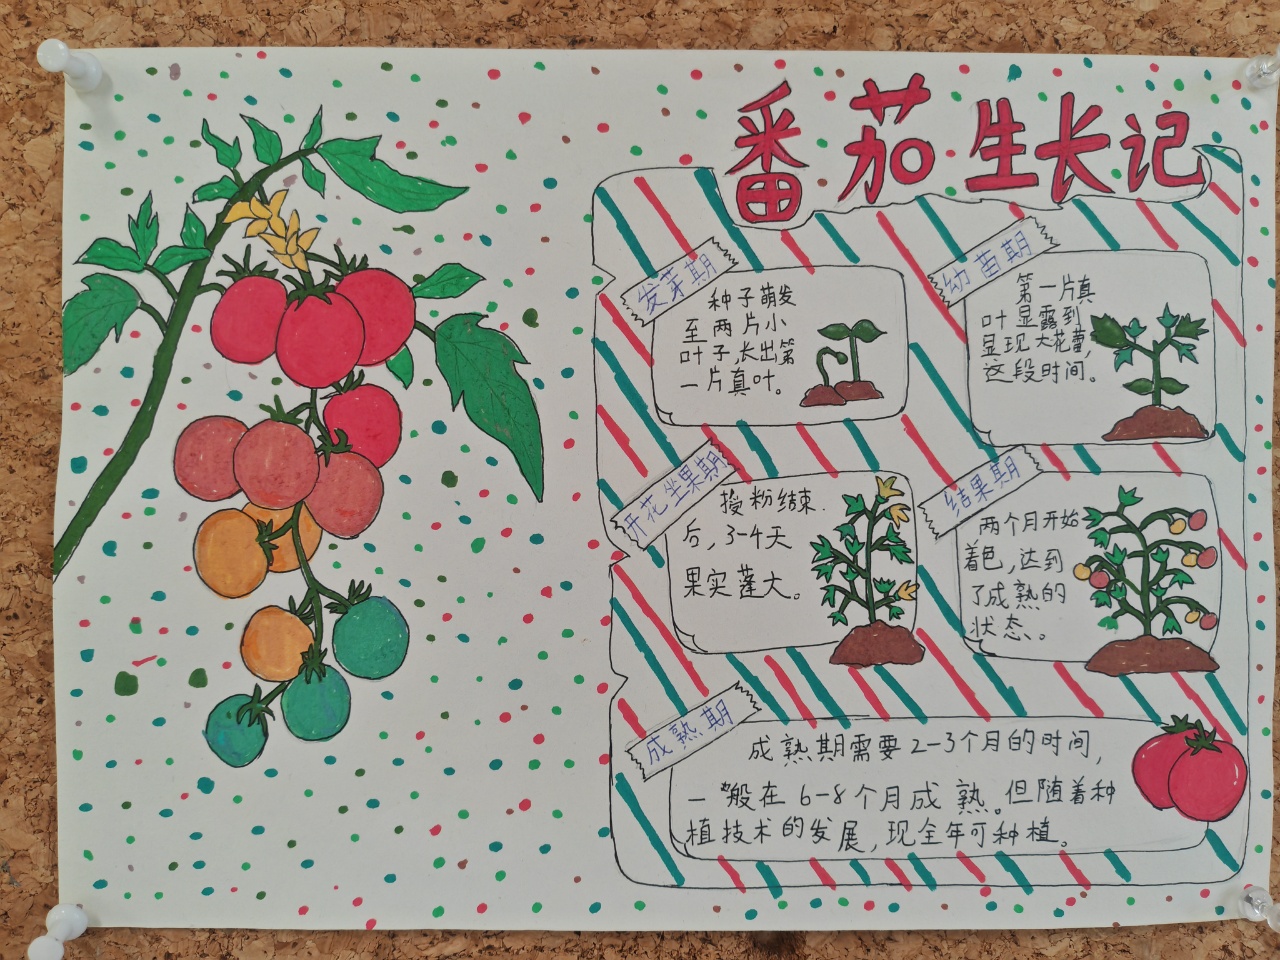 番茄生长记
发芽期
种子萌发
至两片小
叶子,长出第
一片真叶。
幼苗期
第一片真
叶显露到
显现大花蕾,
这段时间。
开花坐果期
授粉结束.
后,3-4天
果实蓬大。
结果期
两个月开始
着色,达到
了成熟的
状态。
成熟期
成熟期需要2-3个月的时间,
一般在6-8个月成熟。但随着种
植技术的发展,现全年可种植。